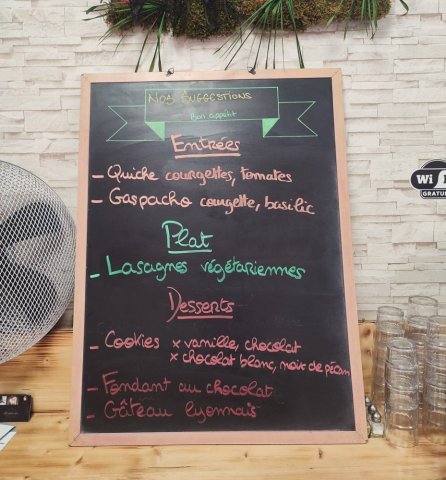 NOS SUGGESTIONS
Bon appétit
Entrées
- Quiche courgettes, tomates
- Gaspacho courgette, basilic
Plat
- Lasagnes végétariennes
Desserts
- Cookies x vanille, chocolat
x chocolat blanc, noix de pécan
- Fondant au chocolat
- Gâteau lyonnais
Wi
GRATUI